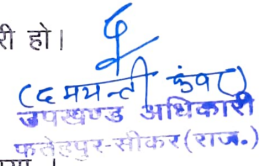 री हो।
(दमयन्ती कंवर)
उपखण्ड अधिकारी
फतेहपुर-सीकर (राज.)